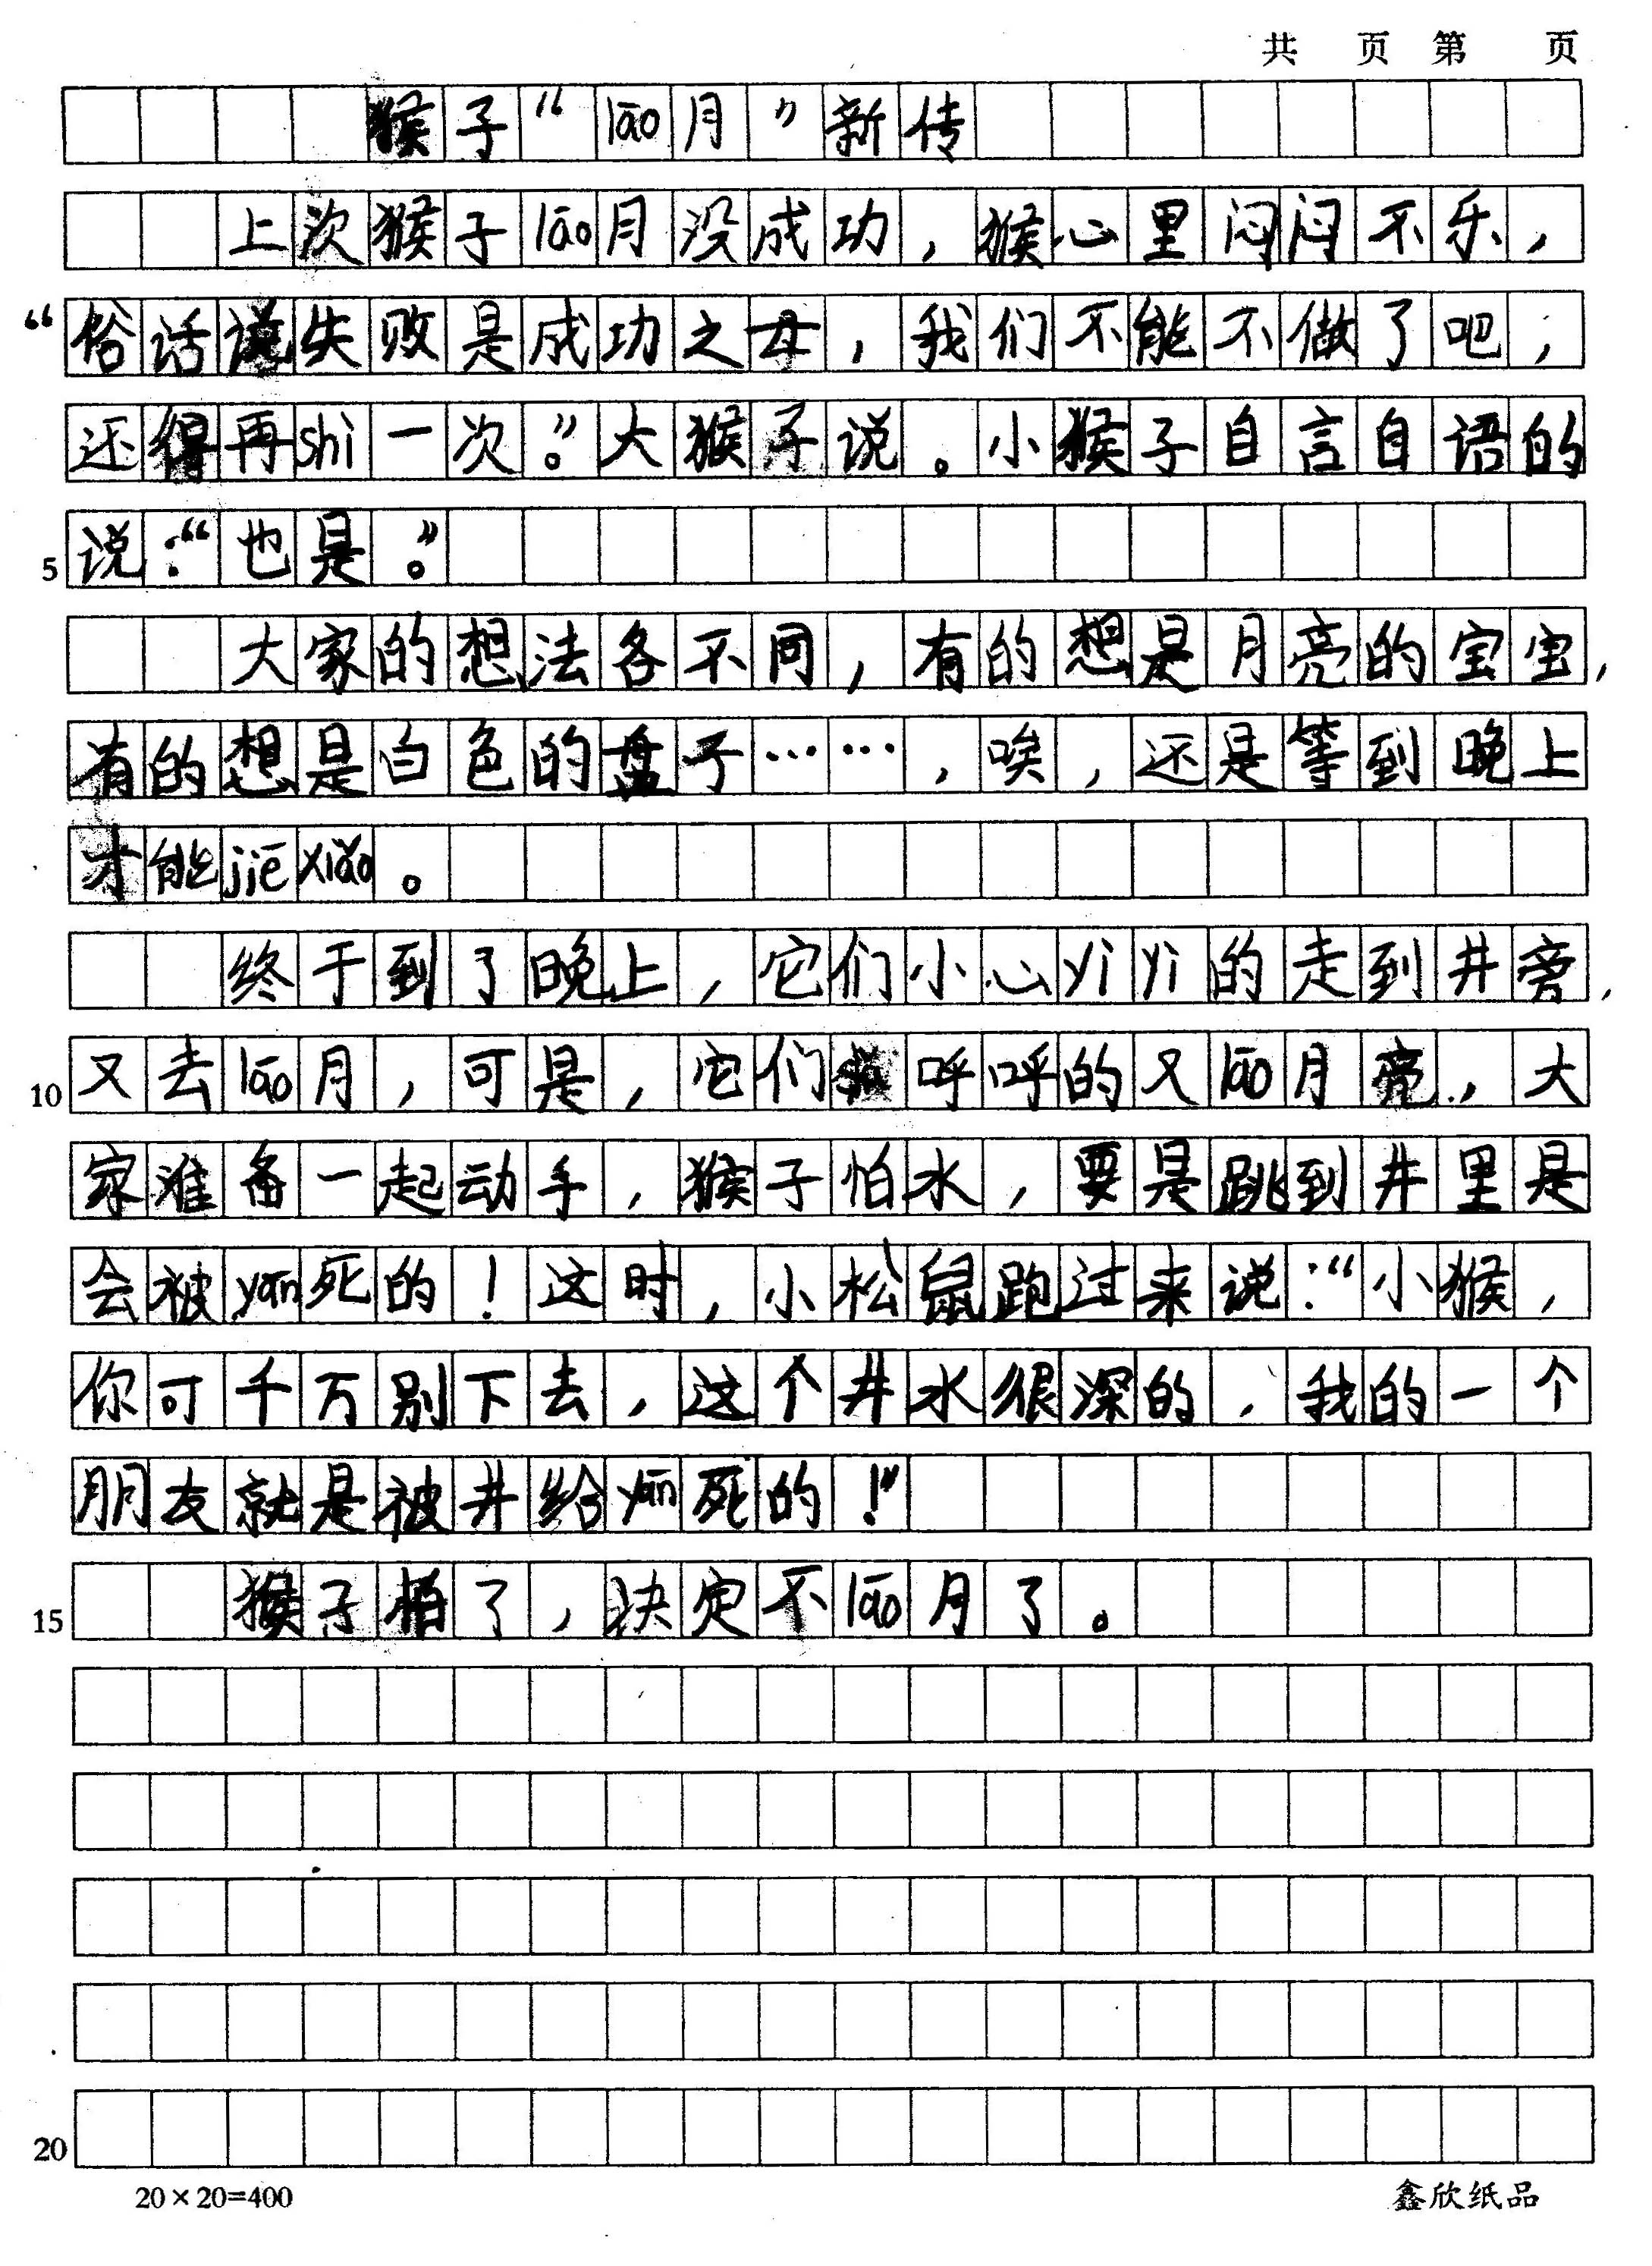 共 页 第 页
猴子“lāo月”新传
上次猴子lāo月没成功，猴心里闷闷不乐，
“俗话说失败是成功之母，我们不能不做了吧，
还得再shi一次。”大猴子说。小猴子自言自语的
5 说：“也是。”
大家的想法各不同，有的想是月亮的宝宝，
有的想是白色的盘子……，唉，还是等到晚上
才能jiē xiǎo。
终于到了晚上，它们小心yì yì的走到井旁，
10 又去lāo月，可是，它们呼呼的又lāo月亮，大
家准备一起动手，猴子怕水，要是跳到井里是
会被yān死的！这时，小松鼠跑过来说：“小猴，
你可千万别下去，这个井水很深的，我的一个
朋友就是被井给yān死的！”
15 猴子怕了，决定不lāo月了。
20
20×20=400 鑫欣纸品